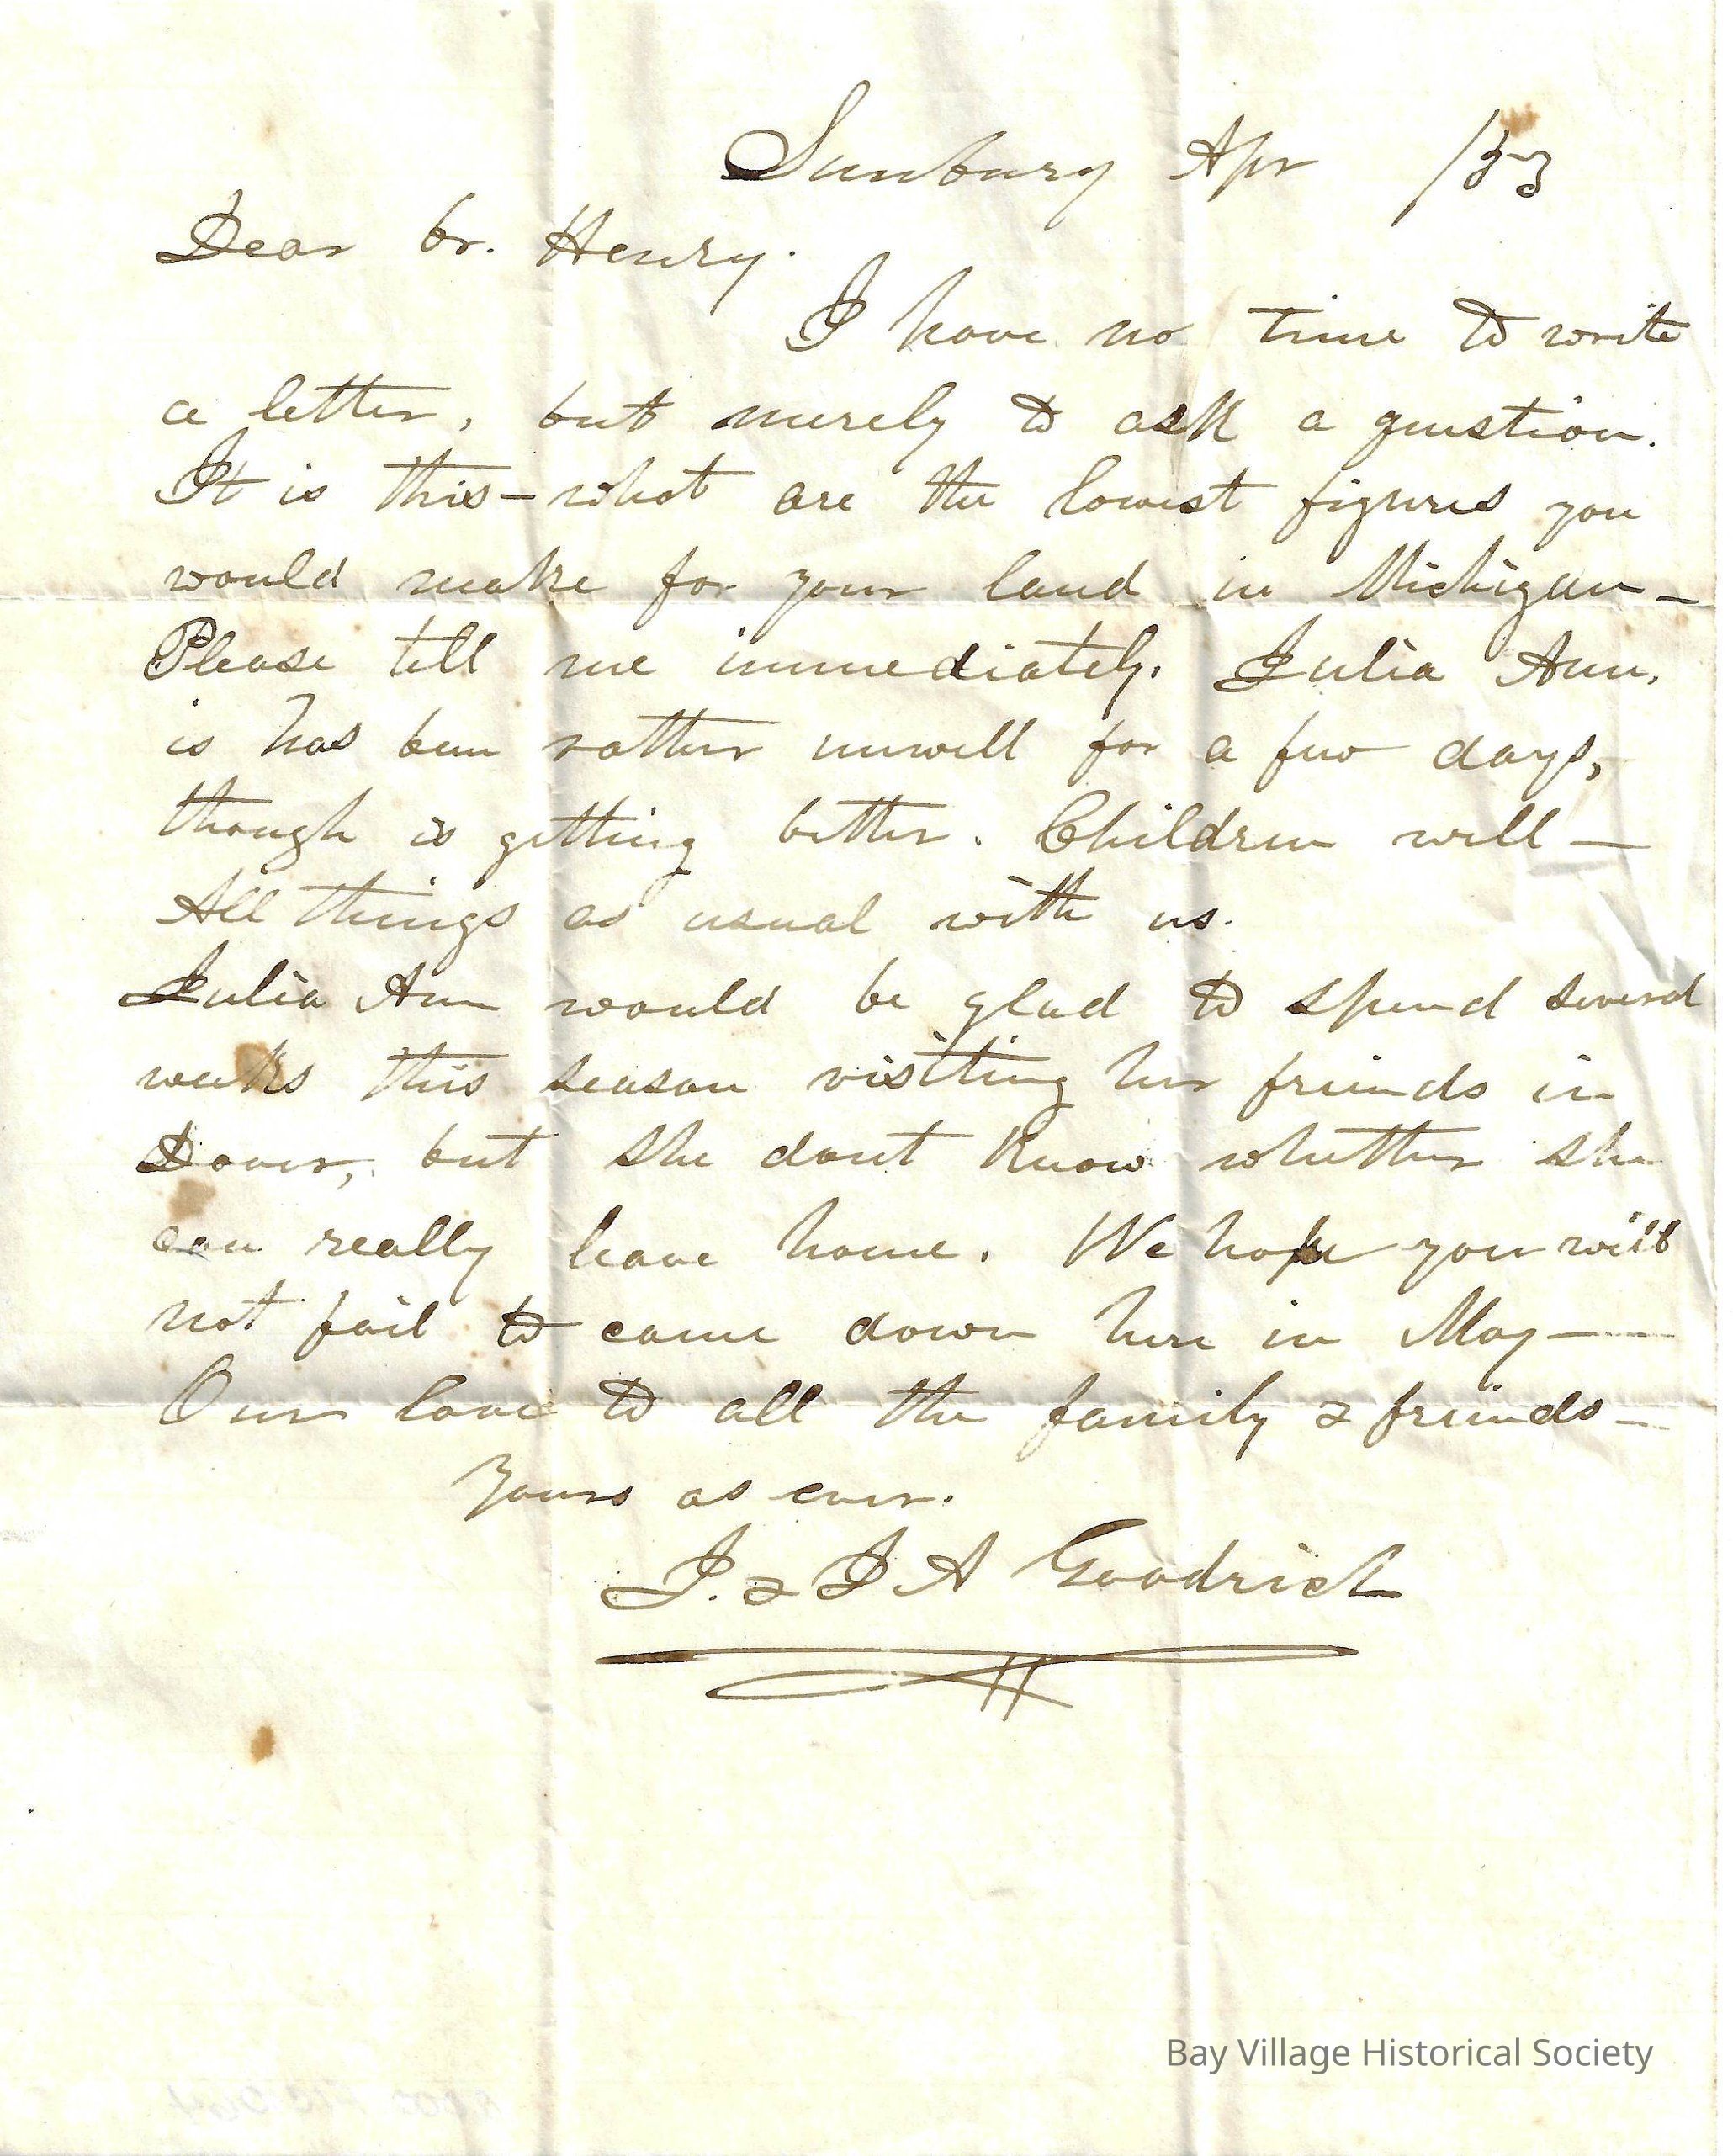 Sunbury Apr /53
Dear br. Henry.
I have no time to write
a letter, but merely to ask a question.
It is this - what are the lowest figures you
would make for your land in Michigan -
Please tell me immediately. Julia Ann.
is has been rather unwell for a few days,
though is getting better. Children well -
All things as usual with us.
Julia Ann would be glad to spend several
weeks this season visitting her friends in
Dover, but she dont know whether she
can really leave home. We hope you will
not fail to come down here in May -
Our love to all the family & friends -
Yours as ever.
J. & J A Goodrich
Bay Village Historical Society